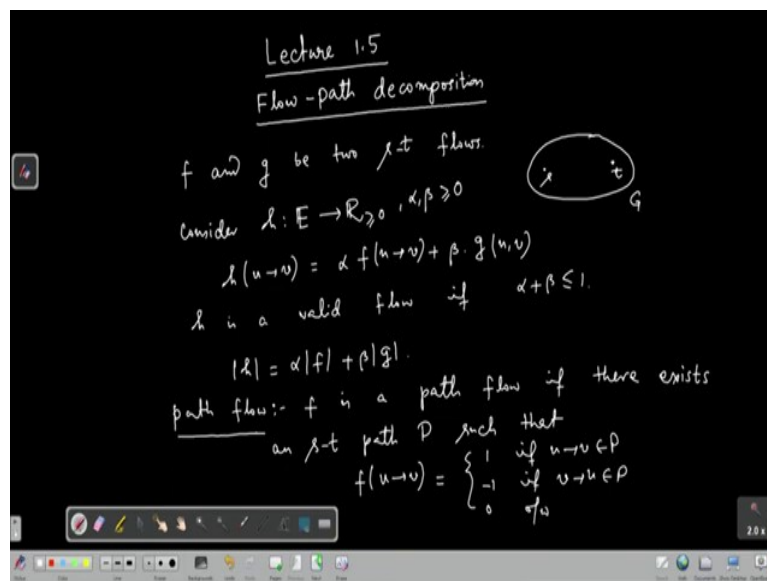 Lecture 1.5
Flow-path decomposition
f and g be two s-t flows.
s t
G
consider h: E → ℝ≥0, α,β ≥ 0
h(u→v) = α f(u→v) + β. g(u,v)
h is a valid flow if α+β ≤ 1.
|h| = α|f| + β|g|.
path flow:- f is a path flow if there exists
an s-t path P such that
f(u→v) = { 1 if u→v ∈ P
-1 if v→u ∈ P
0 o/w
2.0 x